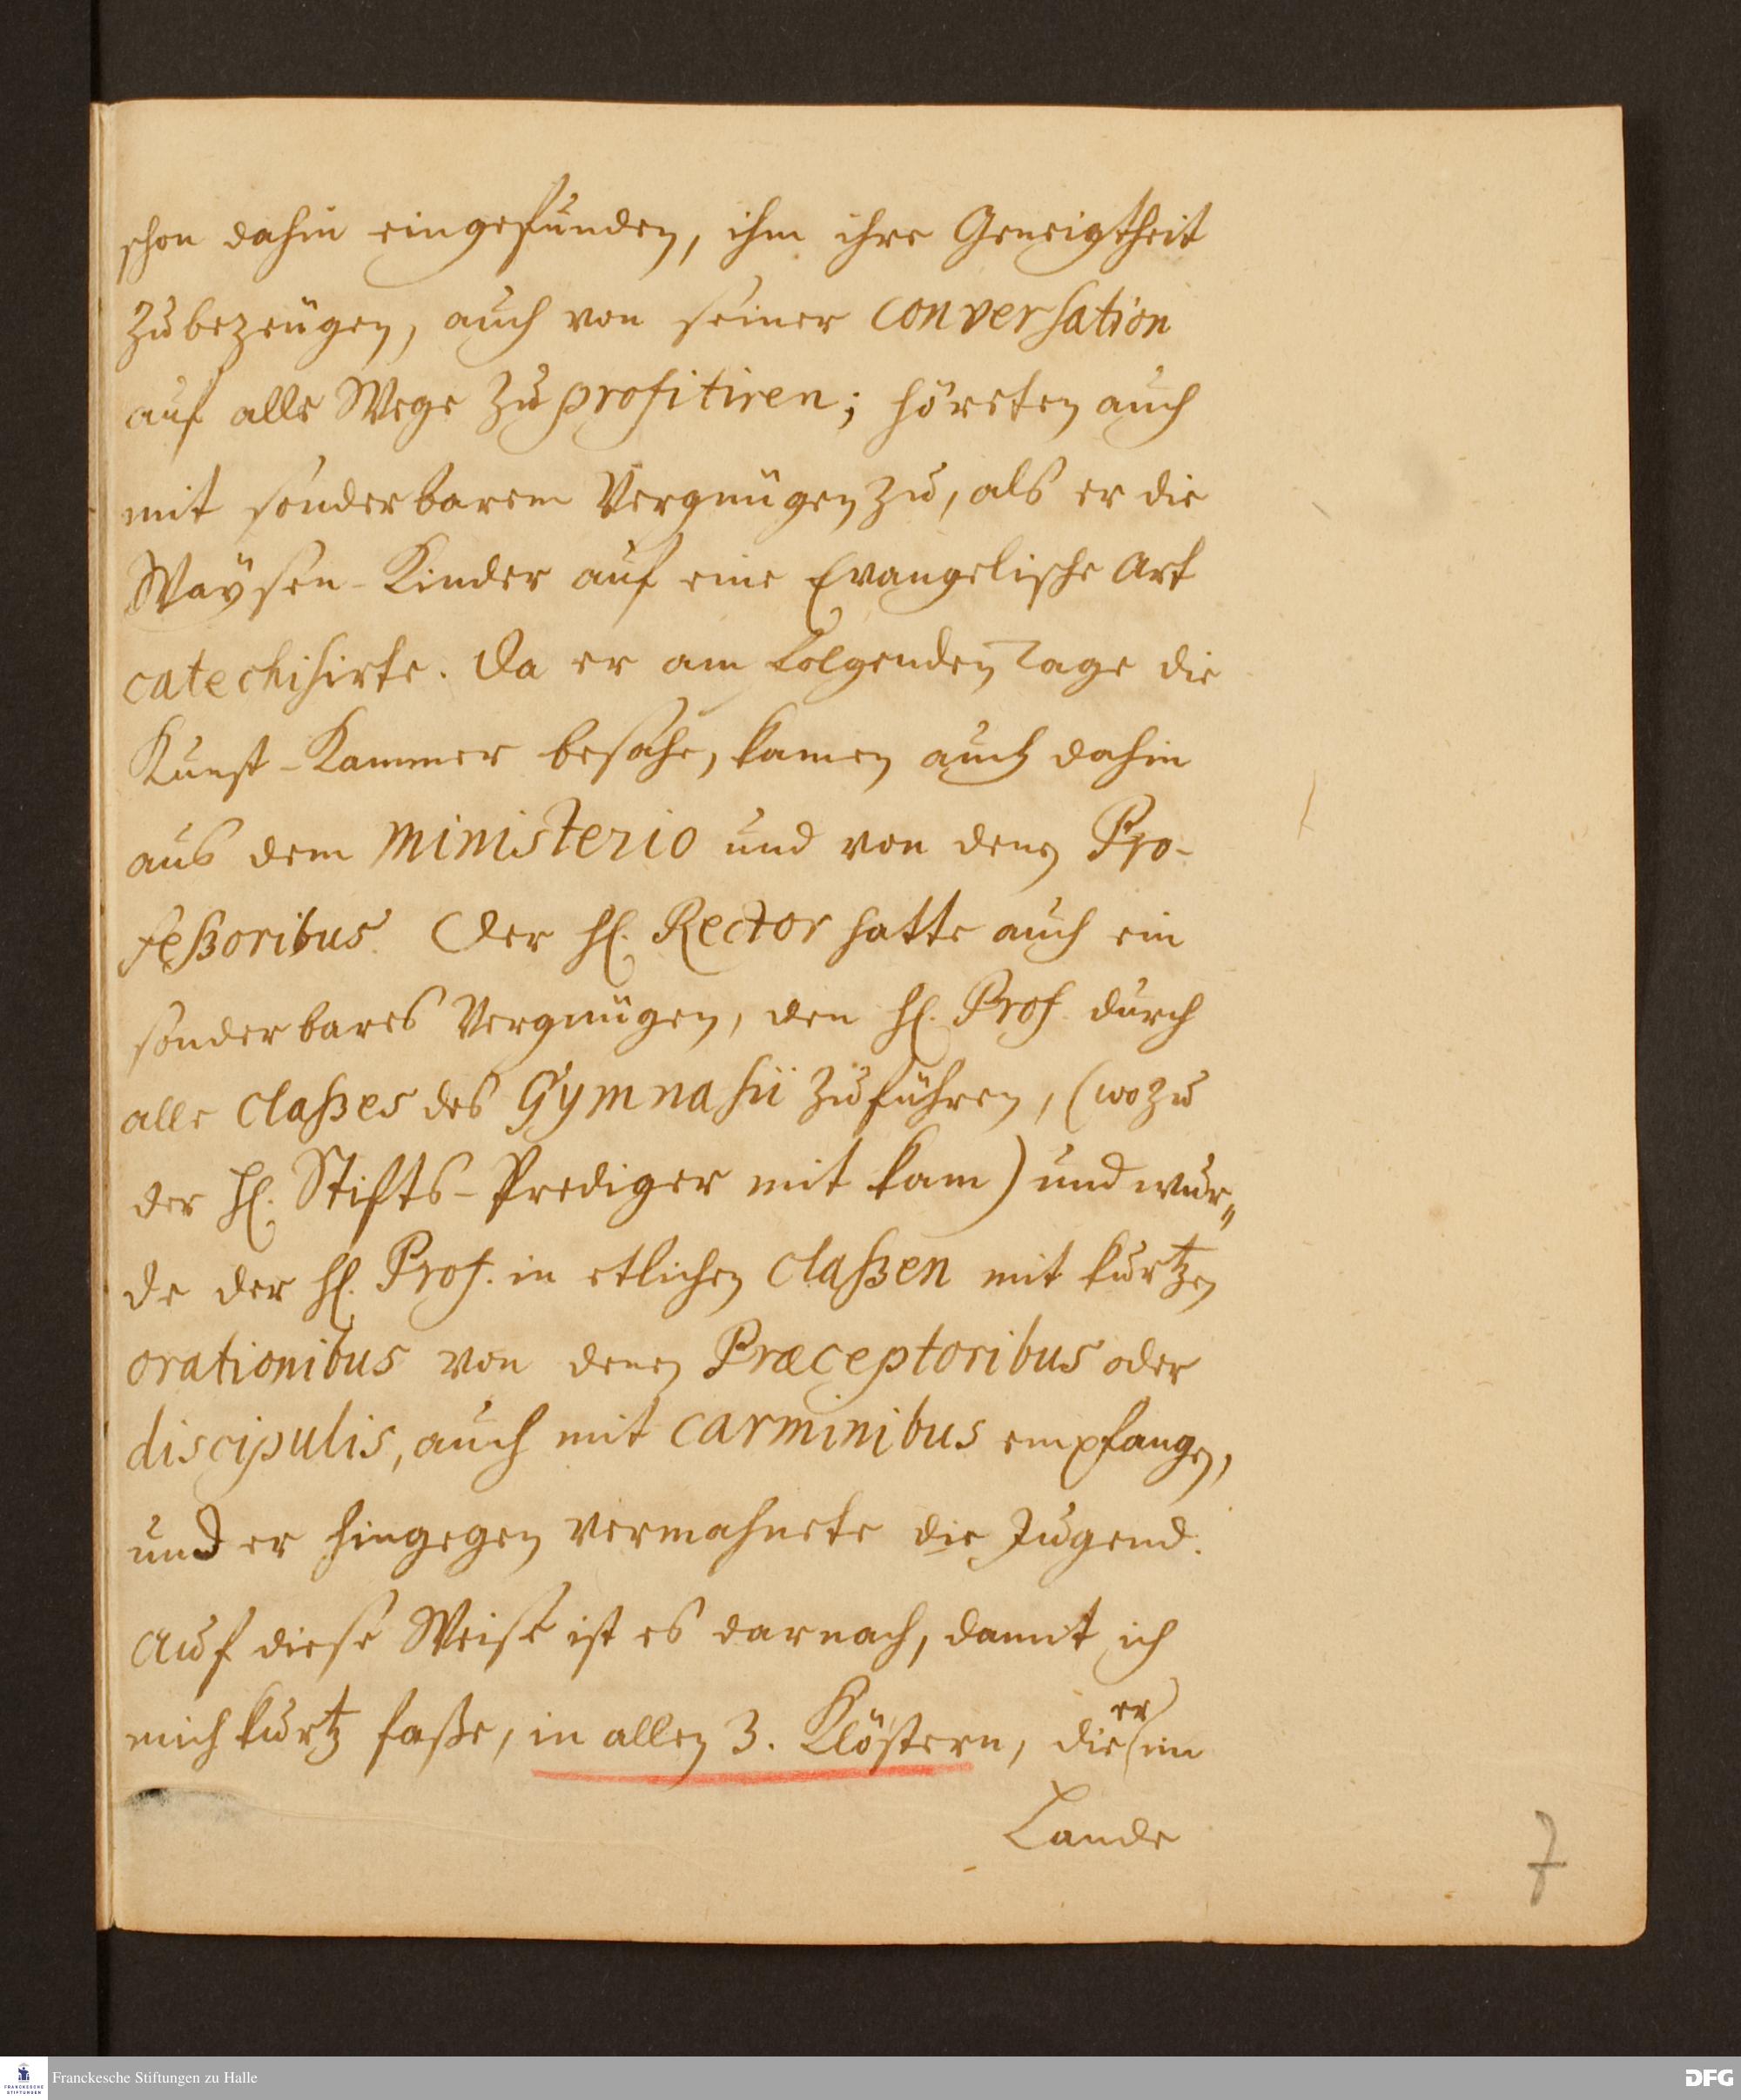 schon dahin eingefunden, ihm ihre Geneigtheit
zubezeugen, auch von seiner conversation
auf alle Wege zu profitiren; höreten auch
mit sonderbarem Vergnügen zu, als er die
Waÿsen-Kinder auf eine Evangelische Art
catechisirte. Da er am folgenden Tage die
Kunst-Kammer besahe, kamen auch dahin
aus dem Ministerio und von denen Pro-
feßoribus. Der H. Rector hatte auch ein
sonderbares Vergnügen, den H. Prof. durch
alle Claßes des Gymnasii zuführen, (wozu
der H. Stifts-Prediger mit kam) und wur„
de der H. Prof. in etlichen Claßen mit kurtzen
orationibus von denen Præceptoribus oder
discipulis, auch mit carminibus empfangen,
und er hingegen vermahnete die Jugend.
Auf diese Weise ist es darnach, damit ich
mich kurtz faße, in allen 3. Klöstern, die er im
Lande
7
Franckesche Stiftungen zu Halle
FRANCKESCHE
STIFTUNGEN
DFG